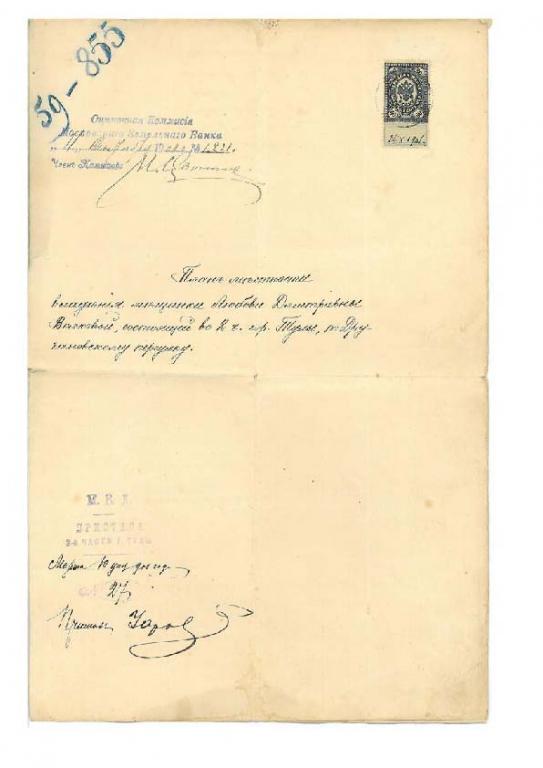 59-855
Оцѣночная Коммисія
Московскаго Земельнаго Банка
190 г. № 1821.
Членъ Коммисіи
Планъ мѣстности
владѣнія мѣщанки Любови Дмитріевны
Волковой, состоящей во 2 ч. гр. Тулы, по Дру-
чениковскому переулку.
М. В. Д.
ПРИСТАВЪ
2-й ЧАСТИ Г. ТУЛЫ
Марта 10 дня год.
№ 27
Приставъ